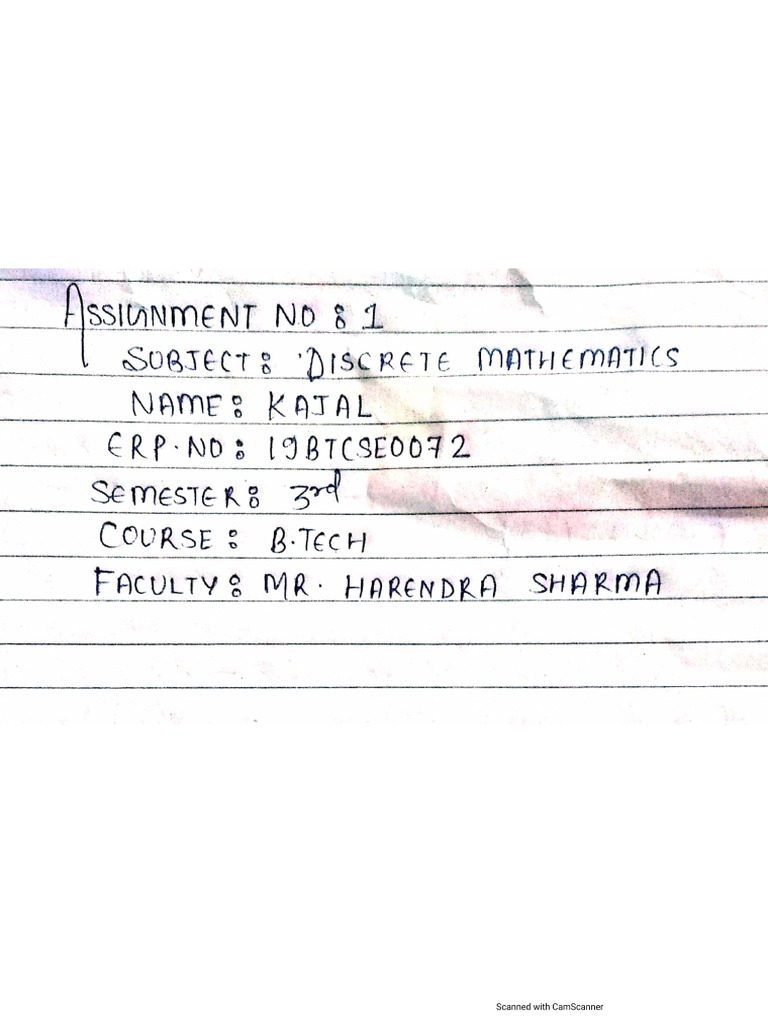 ASSIGNMENT NO : 1
SUBJECT : DISCRETE MATHEMATICS
NAME : KAJAL
ERP.NO : 19BTCSE0072
SEMESTER : 3rd
COURSE : B.TECH
FACULTY : MR. HARENDRA SHARMA
Scanned with CamScanner